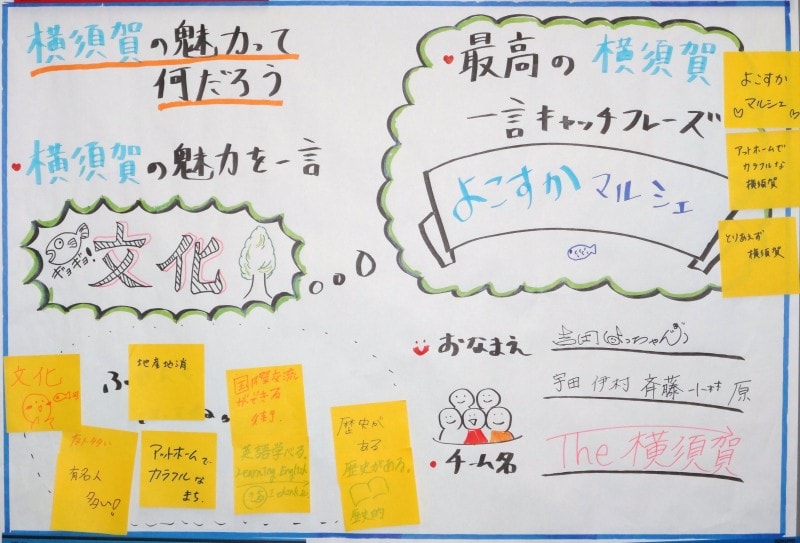 横須賀の魅力って
何だろう
横須賀の魅力を一言
ギョギョ!
文化
最高の 横須賀
一言キャッチフレーズ
よこすかマルシェ
よこすか
マルシェ
アットホームで
カラフルな
横須賀
とりあえず
横須賀
おなまえ
吉田(よっちゃん)
宇田 伊村 斉藤 小林 原
チーム名
The 横須賀
文化
地産地消
ふ
国際交流
ができる
歴史が
ある
有名人
多い!
アットホームで
カラフルな
まち.
英語学べる.
Learning English
歴史がある.
歴史的